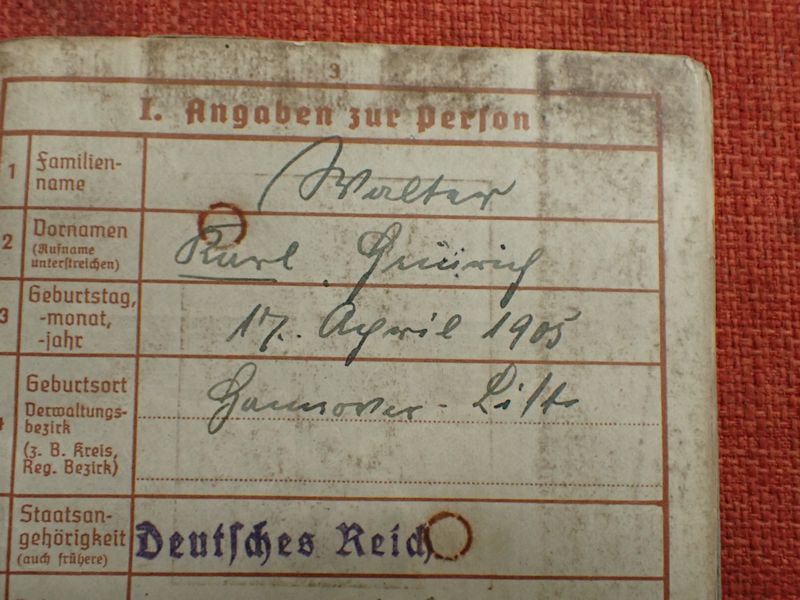 3
I. Angaben zur Person
1 Familien-
name
Walter
2 Vornamen
(Rufname
unterstreichen)
Karl Heinrich
3 Geburtstag,
-monat,
-jahr
17. April 1905
4 Geburtsort
Verwaltungs-
bezirk
(z. B. Kreis,
Reg. Bezirk)
Hannover-
Staatsan-
gehörigkeit
(auch frühere)
Deutsches Reich